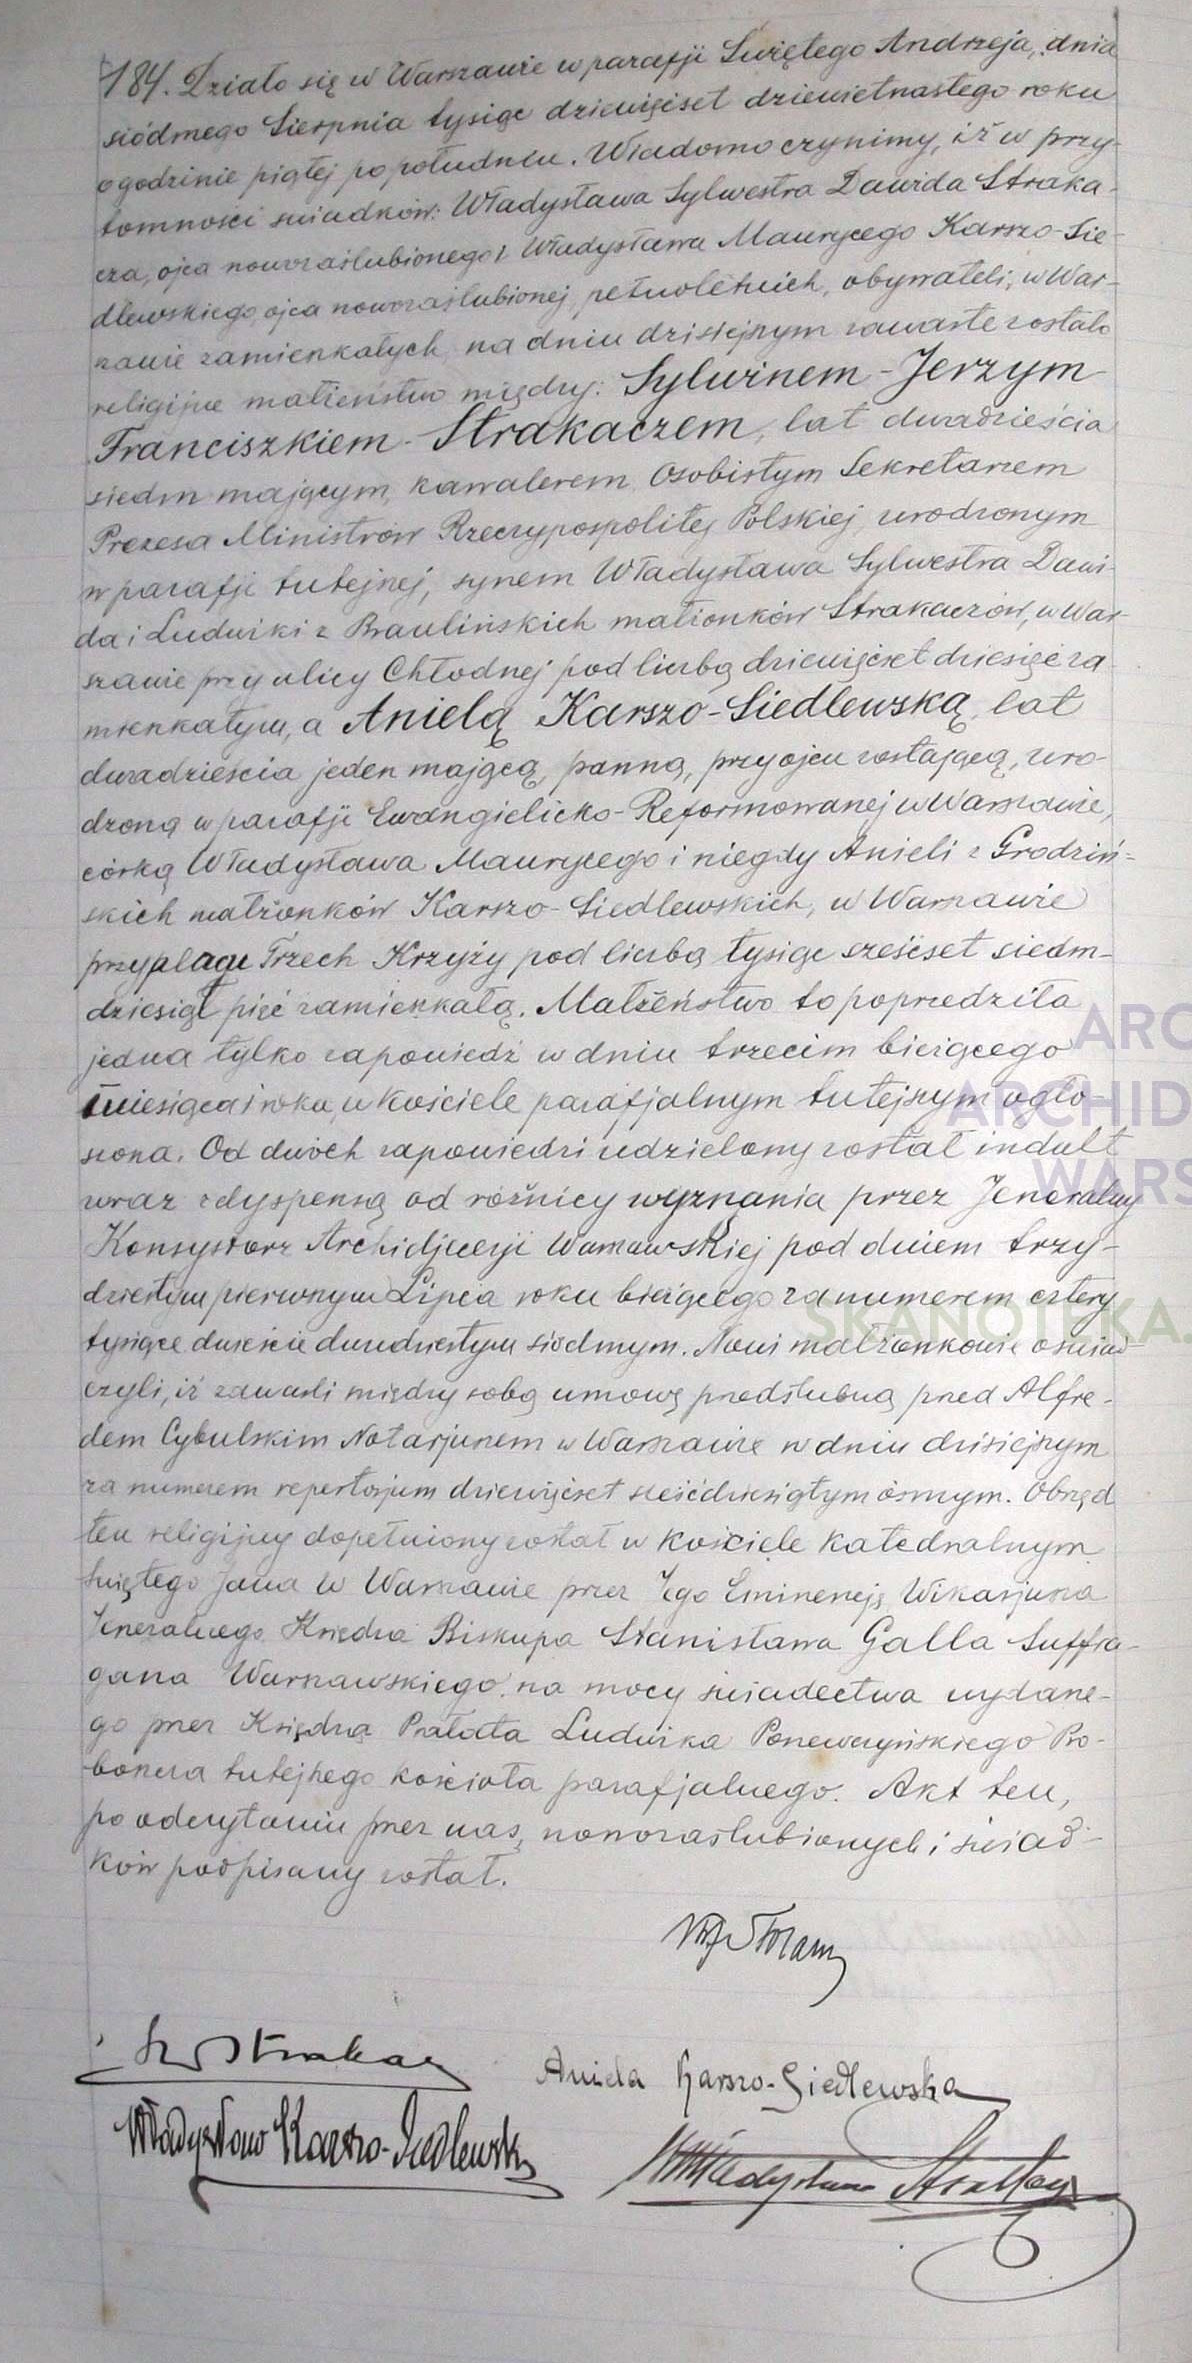 184. Działo się w Warszawie w parafji Świętego Andrzeja, dnia
siódmego Sierpnia tysiąc dziewięćset dziewietnastego roku
o godzinie piątej po południu. Wiadomo czynimy, iż w przy-
tomności świadków: Władysława Sylwestra Dawida Straka-
cza, ojca nowozaślubionego i Władysława Maurycego Karszo-Sie-
dlewskiego, ojca nowozaślubionej, pełnoletnich, obywateli, w War-
szawie zamieszkałych, na dniu dzisiejszym zawarte zostało
religijne małżeństwo między: Sylwinem-Jerzym
Franciszkiem-Strakaczem, lat dwadzieścia
siedm mającym, kawalerem, Osobistym Sekretarzem
Prezesa Ministrów Rzeczypospolitej Polskiej, urodzonym
w parafji tutejszej, synem Władysława Sylwestra Dawi-
da i Ludwiki z Braulińskich małżonków Strakaczów, w War-
szawie przy ulicy Chłodnej pod liczbą dziewięćset dziesięć za-
mieszkałym, a Anielą Karszo-Siedlewską, lat
dwadzieścia jeden mającą, panną, przy ojcu zostającą, uro-
dzoną w parafji Ewangielicko-Reformowanej w Warszawie,
córką Władysława Maurycego i niegdy Anieli z Grodziń-
skich małżonków Karszo-Siedlewskich, w Warszawie
przy placu Trzech Krzyży pod liczbą tysiąc sześćset siedm-
dziesiąt pięć zamieszkałą. Małżeństwo to poprzedziła
jedna tylko zapowiedź w dniu trzecim bieżącego
miesiąca i roku, w kościele parafjalnym tutejszym ogło-
szona. Od dwóch zapowiedzi udzielony został indult
wraz z dyspensą od różnicy wyznania przez Jeneralny
Konsystorz Archidjecezji Warszawskiej pod dniem trzy-
dziestym pierwszym Lipca roku bieżącego za numerem cztery
tysiące dwieście dwudziestym siódmym. Nowi małżonkowie oświad-
czyli, iż zawarli między sobą umowę przedślubną przed Alfre-
dem Cybulskim Notarjuszem w Warszawie w dniu dzisiejszym
za numerem repertorjum dziewięćset sześćdziesiątym ósmym. Obrzęd
ten religijny dopełniony został w kościele katedralnym
Świętego Jana w Warszawie przez Jego Eminencję Wikarjusza
Jeneralnego Księdza Biskupa Stanisława Galla Suffra-
gana Warszawskiego, na mocy świadectwa wydane-
go przez Księdza Prałata Ludwika Ponewczyńskiego Pro-
boszcza tutejszego kościoła parafjalnego. Akt ten,
po odczytaniu przez nas, nowozaślubionych i świad-
ków podpisany został.
Strakacz
Aniela Karszo-Siedlewska
Władysław Karszo-Siedlewski
Władysław Strakacz
ARC
ARCHID
WARS
SKANOTEKA.